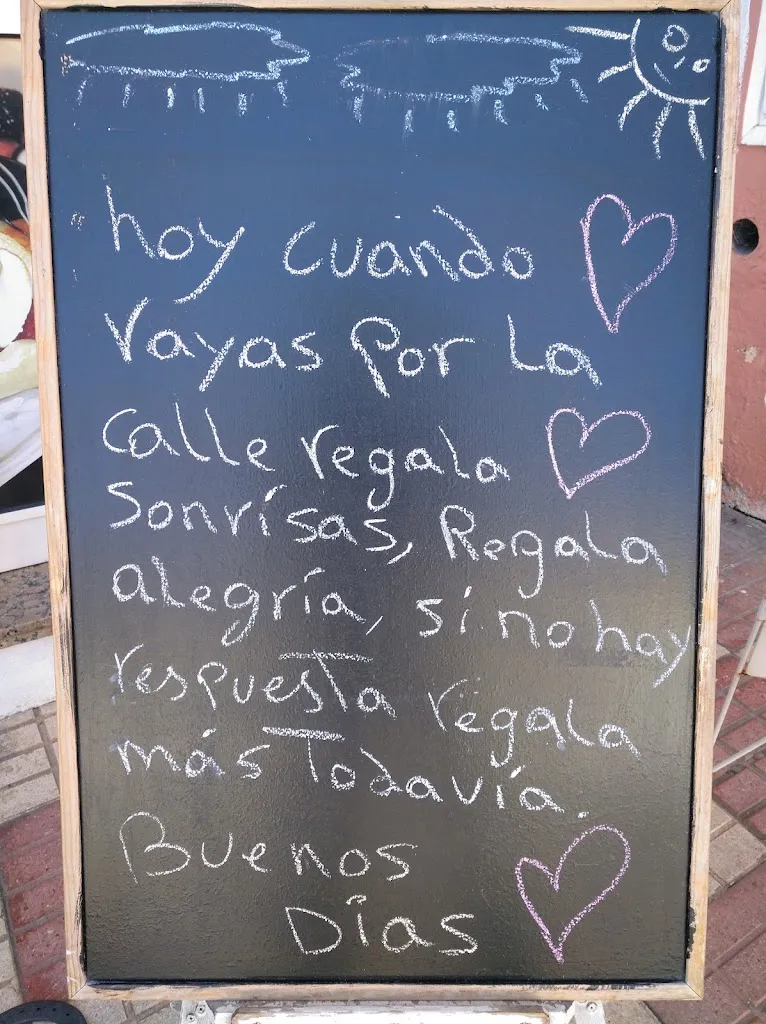 hoy cuando
vayas por la
calle regala
sonrisas, Regala
alegría, si no hay
respuesta regala
más todavía.
Buenos
Días